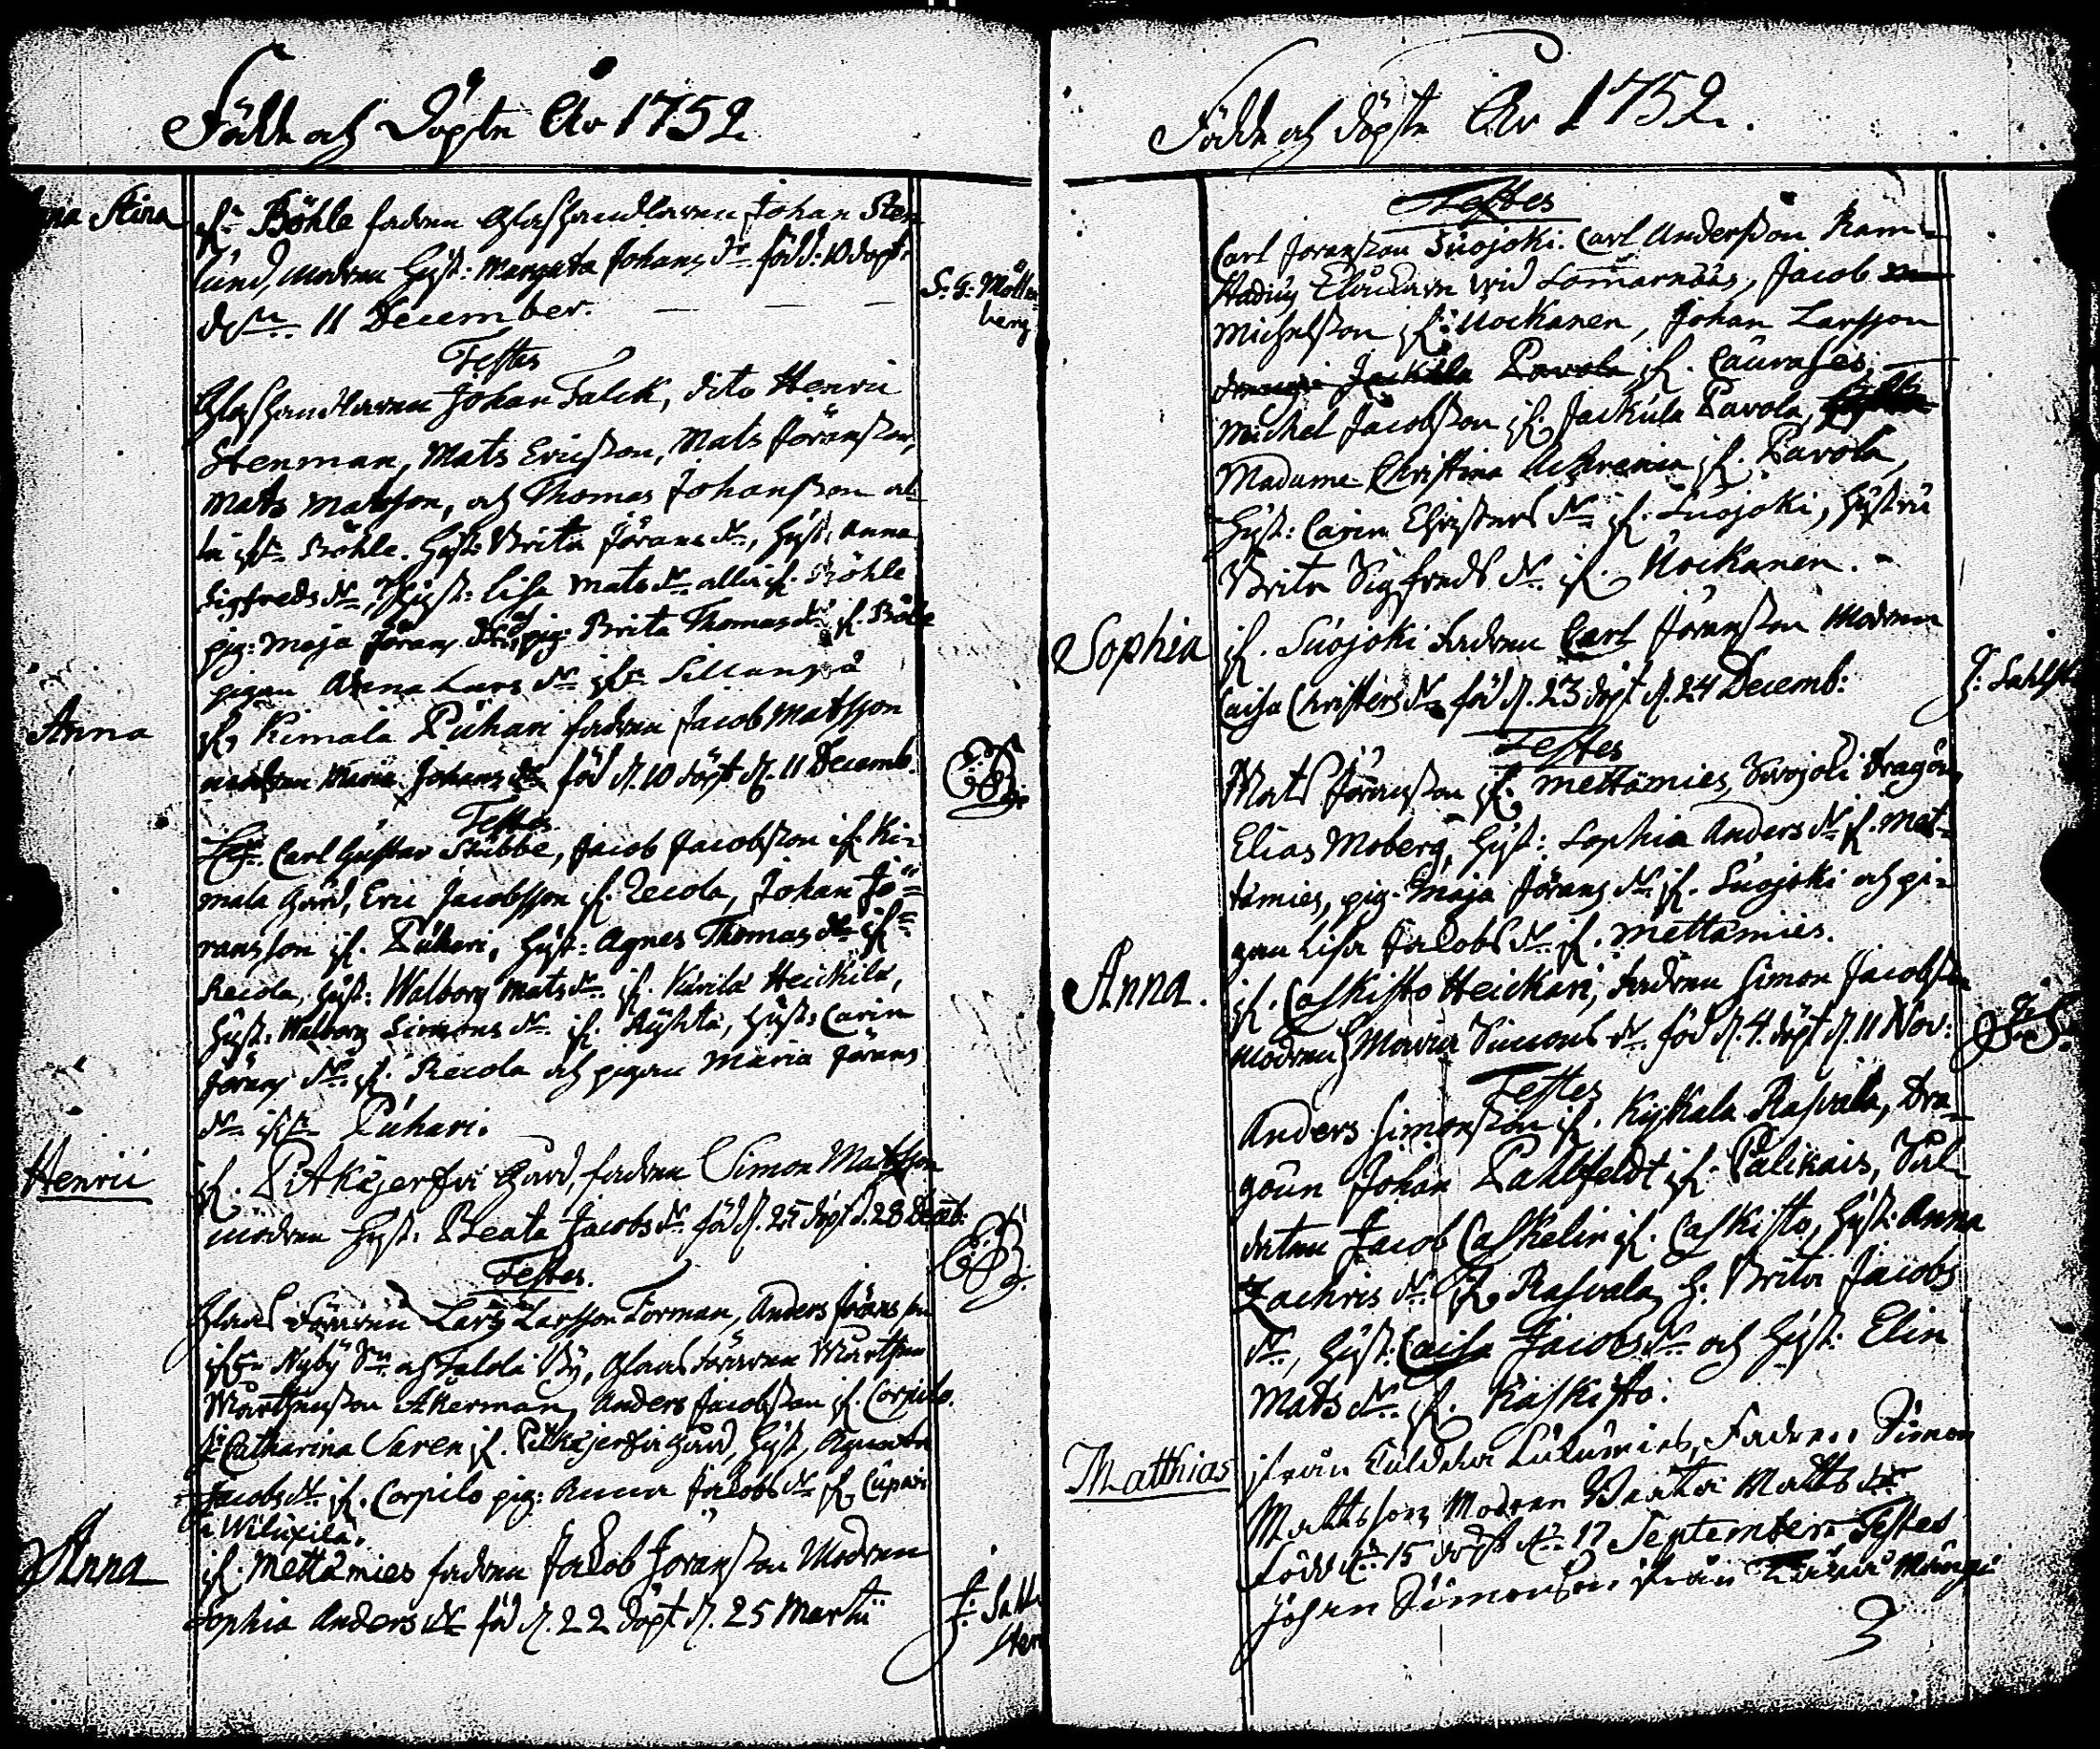 Födde och Döpte År 1752.
Anna Stina
fr: Böhle fadren Glashandlaren Johan Sten
lund, modren Hust: Margeta Johans dr född: 10 döpt
d. 11 December.
S. G: Möllen
berg
Testes
Glashandlaren Johan Falck, dito Henric
Stenman, Mats Ericsson, Mats Jöransson,
Mats Matsson, och Thomas Johansson al
la fr. Böhle. Hust: Brita Jörans dr, Hust: Anna
Sigfreds dr, Hust: Lisa Mats dr alla fr. Böhle
pig: Maja Jörans dr, pig: Brita Thomas dr fr. Böle
pigan Anna Lars dr fr. Sillanpä
Anna
fr. Kimala Puhari fadren Jacob Matsson
modren Maria Johans dr född d. 10 döpt d. 11 Decemb.
Testes
Carl Gustav Stubbe, Jacob Jacobsson fr. Ki-
mala Gård, Eric Jacobsson fr. Recola, Johan Jö-
ransson fr. Puhari, Hust: Agnes Thomas dr fr.
Recola, Hust: Walborg Mats dr fr. Karila Heickilä,
Hust: Walborg Simons dr fr. Ryhta, Hust: Carin
Jörans dr fr. Recola och pigan Maria Jörans
dr fr. Puhari.
Henric
fr. Pitkejerfvi Gård, fadren Simon Matsson
modren Hust: Beata Jacobs dr född d. 25 döpt d. 28 Decemb:
Testes.
Lars Larsson Forman, Anders Jöransson
fr. Nyby och Talola By, Mårthen
Mårthensson Åkerman, Anders Jacobsson fr. Corpilo.
Catharina Saren fr. Pitkejerfvi gård, Hust: Agneta
Jacobs dr fr. Corpilo pig: Anna Jacobs dr fr. Cupari
i Wiluxela.
Anna
fr. Mettämies fadren Jacob Jöransson Modren
Sophia Anders dr född d. 22 döpt d. 25 Martii
J: Sahl
sten
Födde och döpte År 1752.
Testes
Carl Jöransson Suojoki. Carl Andersson Ram-
stadius Klockaren vid Somarnäs, Jacob
Michelsson fr. Uockanen, Johan Larsson
Jackula Pavola fr. Caurases,
Michel Jacobsson fr. Jackula Pavola,
Madame Christina Achrenia fr. Pavola,
Hust: Carin Christers dr fr. Suojoki, Hustru
Brita Sigfreds dr fr. Uockanen.
Sophia
fr. Suojoki Fadren Carl Jöransson Modren
Caisa Christers dr född d. 23 döpt d. 24 Decemb:
J: Sahlst
Testes
Mats Jöransson fr. Mettämies, Suojoki Dragon
Elias Moberg, Hust: Sophia Anders dr fr. Met-
tämies, pig: Maja Jörans dr fr. Suojoki och pi-
gan Lisa Jacobs dr fr. Mettämies.
Anna.
fr. Caskisto Heickari, Fadren Simon Jacobsson
Modren Maria Simons dr född d. 4. döpt d. 11 Nov:
Testes
Anders Simonsson fr. Kyskala Rasvala, Dra-
goun Johan Pahlfeldt fr. Palikais, Sol-
daten Jacob Caskelin fr. Caskisto, Hust: Anna
Zachris dr fr. Rasvala, H: Brita Jacobs
dr, Hust: Caisa Jacobs dr och Hust: Elin
Mats dr fr. Kaskisto.
Matthias
ifrån Luklumies, Fadren Simon
Mattsson Modren Beata Matts dr
född d. 15 döpt d. 17 September. Testes
Johan Simonsson ifrån